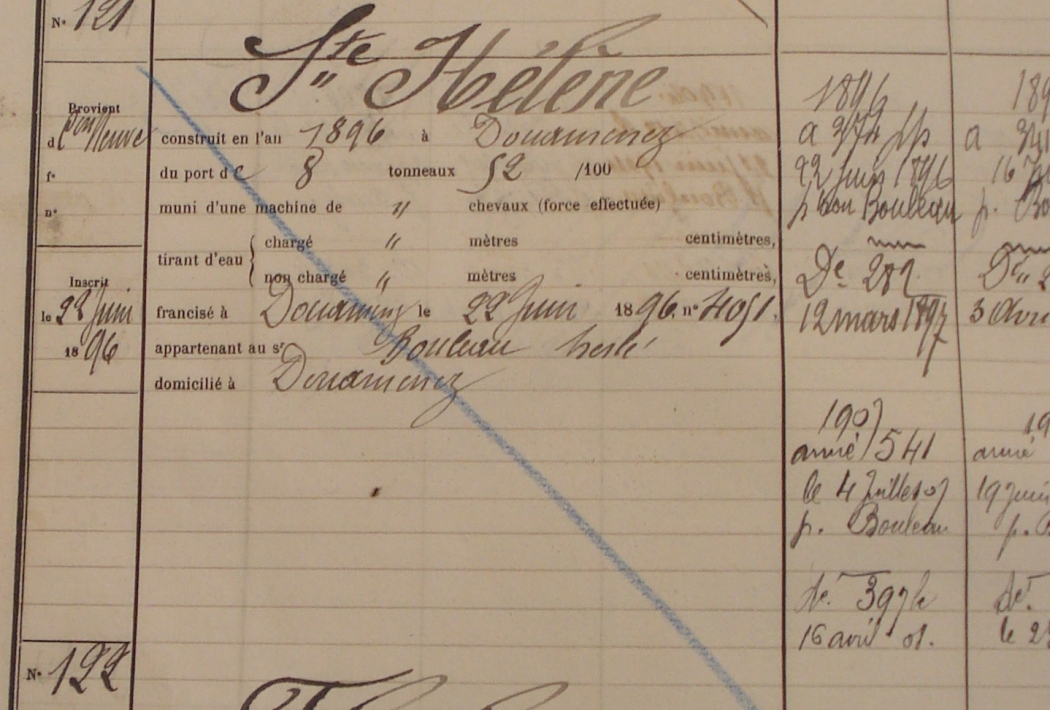 N° 121
Ste Hélène
Provient
d Con Neuve
f°
n°
Inscrit
le 22 Juin
18 96
construit en l'an 1896 à Douarnenez
du port de 8 tonneaux 52 /100
muni d'une machine de " chevaux (force effectuée)
tirant d'eau { chargé " mètres centimètres,
non chargé " mètres centimètres,
francisé à Douarnenez le 22 Juin 1896, n° 4051.
appartenant au sr Bouleau
domicilié à Douarnenez
1896
a 374
22 Juin 1896
p Bouleau
Dé 287
12 mars 1897
1907
armé 541
le 4 Juillet 07
p. Bouleau
dé. 397
16 avril 01.
189
a 341
16
p. Bo
3 Avri
19
armé
19 Juin
p. B
dé.
le 2
N° 122